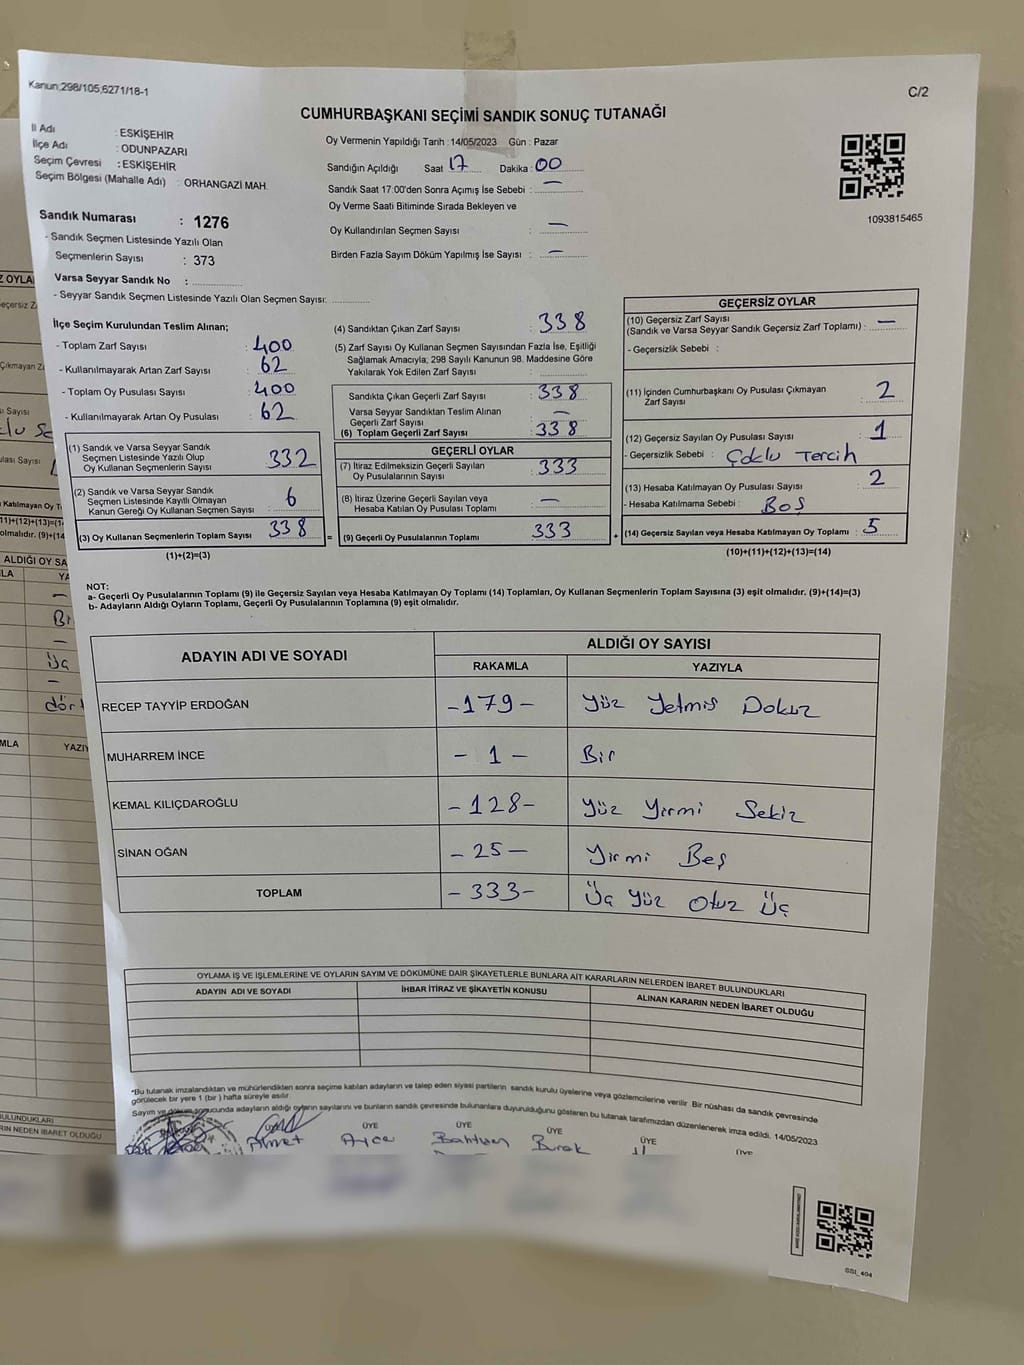 Kanun;298/105,6271/18-1
C/2
CUMHURBAŞKANI SEÇİMİ SANDIK SONUÇ TUTANAĞI
İl Adı : ESKİŞEHİR
İlçe Adı : ODUNPAZARI
Seçim Çevresi : ESKİŞEHİR
Seçim Bölgesi (Mahalle Adı) : ORHANGAZİ MAH.
Sandık Numarası : 1276
- Sandık Seçmen Listesinde Yazılı Olan
Seçmenlerin Sayısı : 373
Varsa Seyyar Sandık No :
- Seyyar Sandık Seçmen Listesinde Yazılı Olan Seçmen Sayısı:
Oy Vermenin Yapıldığı Tarih : 14/05/2023 Gün : Pazar
Sandığın Açıldığı Saat 17 Dakika 00
Sandık Saat 17:00'den Sonra Açımış İse Sebebi : —
Oy Verme Saati Bitiminde Sırada Bekleyen ve
Oy Kullandırılan Seçmen Sayısı : —
Birden Fazla Sayım Döküm Yapılmış İse Sayısı : —
1093815465
İlçe Seçim Kurulundan Teslim Alınan;
- Toplam Zarf Sayısı : 400
- Kullanılmayarak Artan Zarf Sayısı : 62
- Toplam Oy Pusulası Sayısı : 400
- Kullanılmayarak Artan Oy Pusulası : 62
(1) Sandık ve Varsa Seyyar Sandık
Seçmen Listesinde Yazılı Olup
Oy Kullanan Seçmenlerin Sayısı 332
(2) Sandık ve Varsa Seyyar Sandık
Seçmen Listesinde Kayıtlı Olmayan
Kanun Gereği Oy Kullanan Seçmen Sayısı : 6
(3) Oy Kullanan Seçmenlerin Toplam Sayısı 338
(1)+(2)=(3)
(4) Sandıktan Çıkan Zarf Sayısı : 338
(5) Zarf Sayısı Oy Kullanan Seçmen Sayısından Fazla İse, Eşitliği
Sağlamak Amacıyla; 298 Sayılı Kanunun 98. Maddesine Göre
Yakılarak Yok Edilen Zarf Sayısı :
Sandıkta Çıkan Geçerli Zarf Sayısı : 338
Varsa Seyyar Sandıktan Teslim Alınan
Geçerli Zarf Sayısı : —
(6) Toplam Geçerli Zarf Sayısı : 338
GEÇERLİ OYLAR
(7) İtiraz Edilmeksizin Geçerli Sayılan
Oy Pusulalarının Sayısı : 333
(8) İtiraz Üzerine Geçerli Sayılan veya
Hesaba Katılan Oy Pusulası Toplamı : —
= (9) Geçerli Oy Pusulalarının Toplamı 333 +
GEÇERSİZ OYLAR
(10) Geçersiz Zarf Sayısı
(Sandık ve Varsa Seyyar Sandık Geçersiz Zarf Toplamı) : —
- Geçersizlik Sebebi :
(11) İçinden Cumhurbaşkanı Oy Pusulası Çıkmayan
Zarf Sayısı : 2
(12) Geçersiz Sayılan Oy Pusulası Sayısı : 1
- Geçersizlik Sebebi : Çoklu Tercih
(13) Hesaba Katılmayan Oy Pusulası Sayısı : 2
- Hesaba Katılmama Sebebi : Boş
(14) Geçersiz Sayılan veya Hesaba Katılmayan Oy Toplamı : 5
(10)+(11)+(12)+(13)=(14)
NOT:
a- Geçerli Oy Pusulalarının Toplamı (9) ile Geçersiz Sayılan veya Hesaba Katılmayan Oy Toplamı (14) Toplamları, Oy Kullanan Seçmenlerin Toplam Sayısına (3) eşit olmalıdır. (9)+(14)=(3)
b- Adayların Aldığı Oyların Toplamı, Geçerli Oy Pusulalarının Toplamına (9) eşit olmalıdır.
ADAYIN ADI VE SOYADI
ALDIĞI OY SAYISI
RAKAMLA YAZIYLA
RECEP TAYYİP ERDOĞAN -179- Yüz Yetmiş Dokuz
MUHARREM İNCE - 1 - Bir
KEMAL KILIÇDAROĞLU -128- Yüz Yirmi Sekiz
SİNAN OĞAN - 25 - Yirmi Beş
TOPLAM -333- Üç Yüz Otuz Üç
OYLAMA İŞ VE İŞLEMLERİNE VE OYLARIN SAYIM VE DÖKÜMÜNE DAİR ŞİKAYETLERLE BUNLARA AİT KARARLARIN NELERDEN İBARET BULUNDUKLARI
ADAYIN ADI VE SOYADI İHBAR İTİRAZ VE ŞİKAYETİN KONUSU ALINAN KARARIN NEDEN İBARET OLDUĞU
*Bu tutanak imzalandıktan ve mühürlendikten sonra seçime katılan adayların ve talep eden siyasi partilerin sandık kurulu üyelerine veya gözlemcilerine verilir. Bir nüshası da sandık çevresinde
görülecek bir yere 1 (bir ) hafta süreyle asılır.
Sayım ve döküm sonucunda adayların aldığı oyların sayılarını ve bunların sandık çevresinde bulunanlara duyurulduğunu gösteren bu tutanak tarafımızdan düzenlenerek imza edildi. 14/05/2023
ÜYE ÜYE ÜYE ÜYE ÜYE
Ahmet Burak
SSI_404